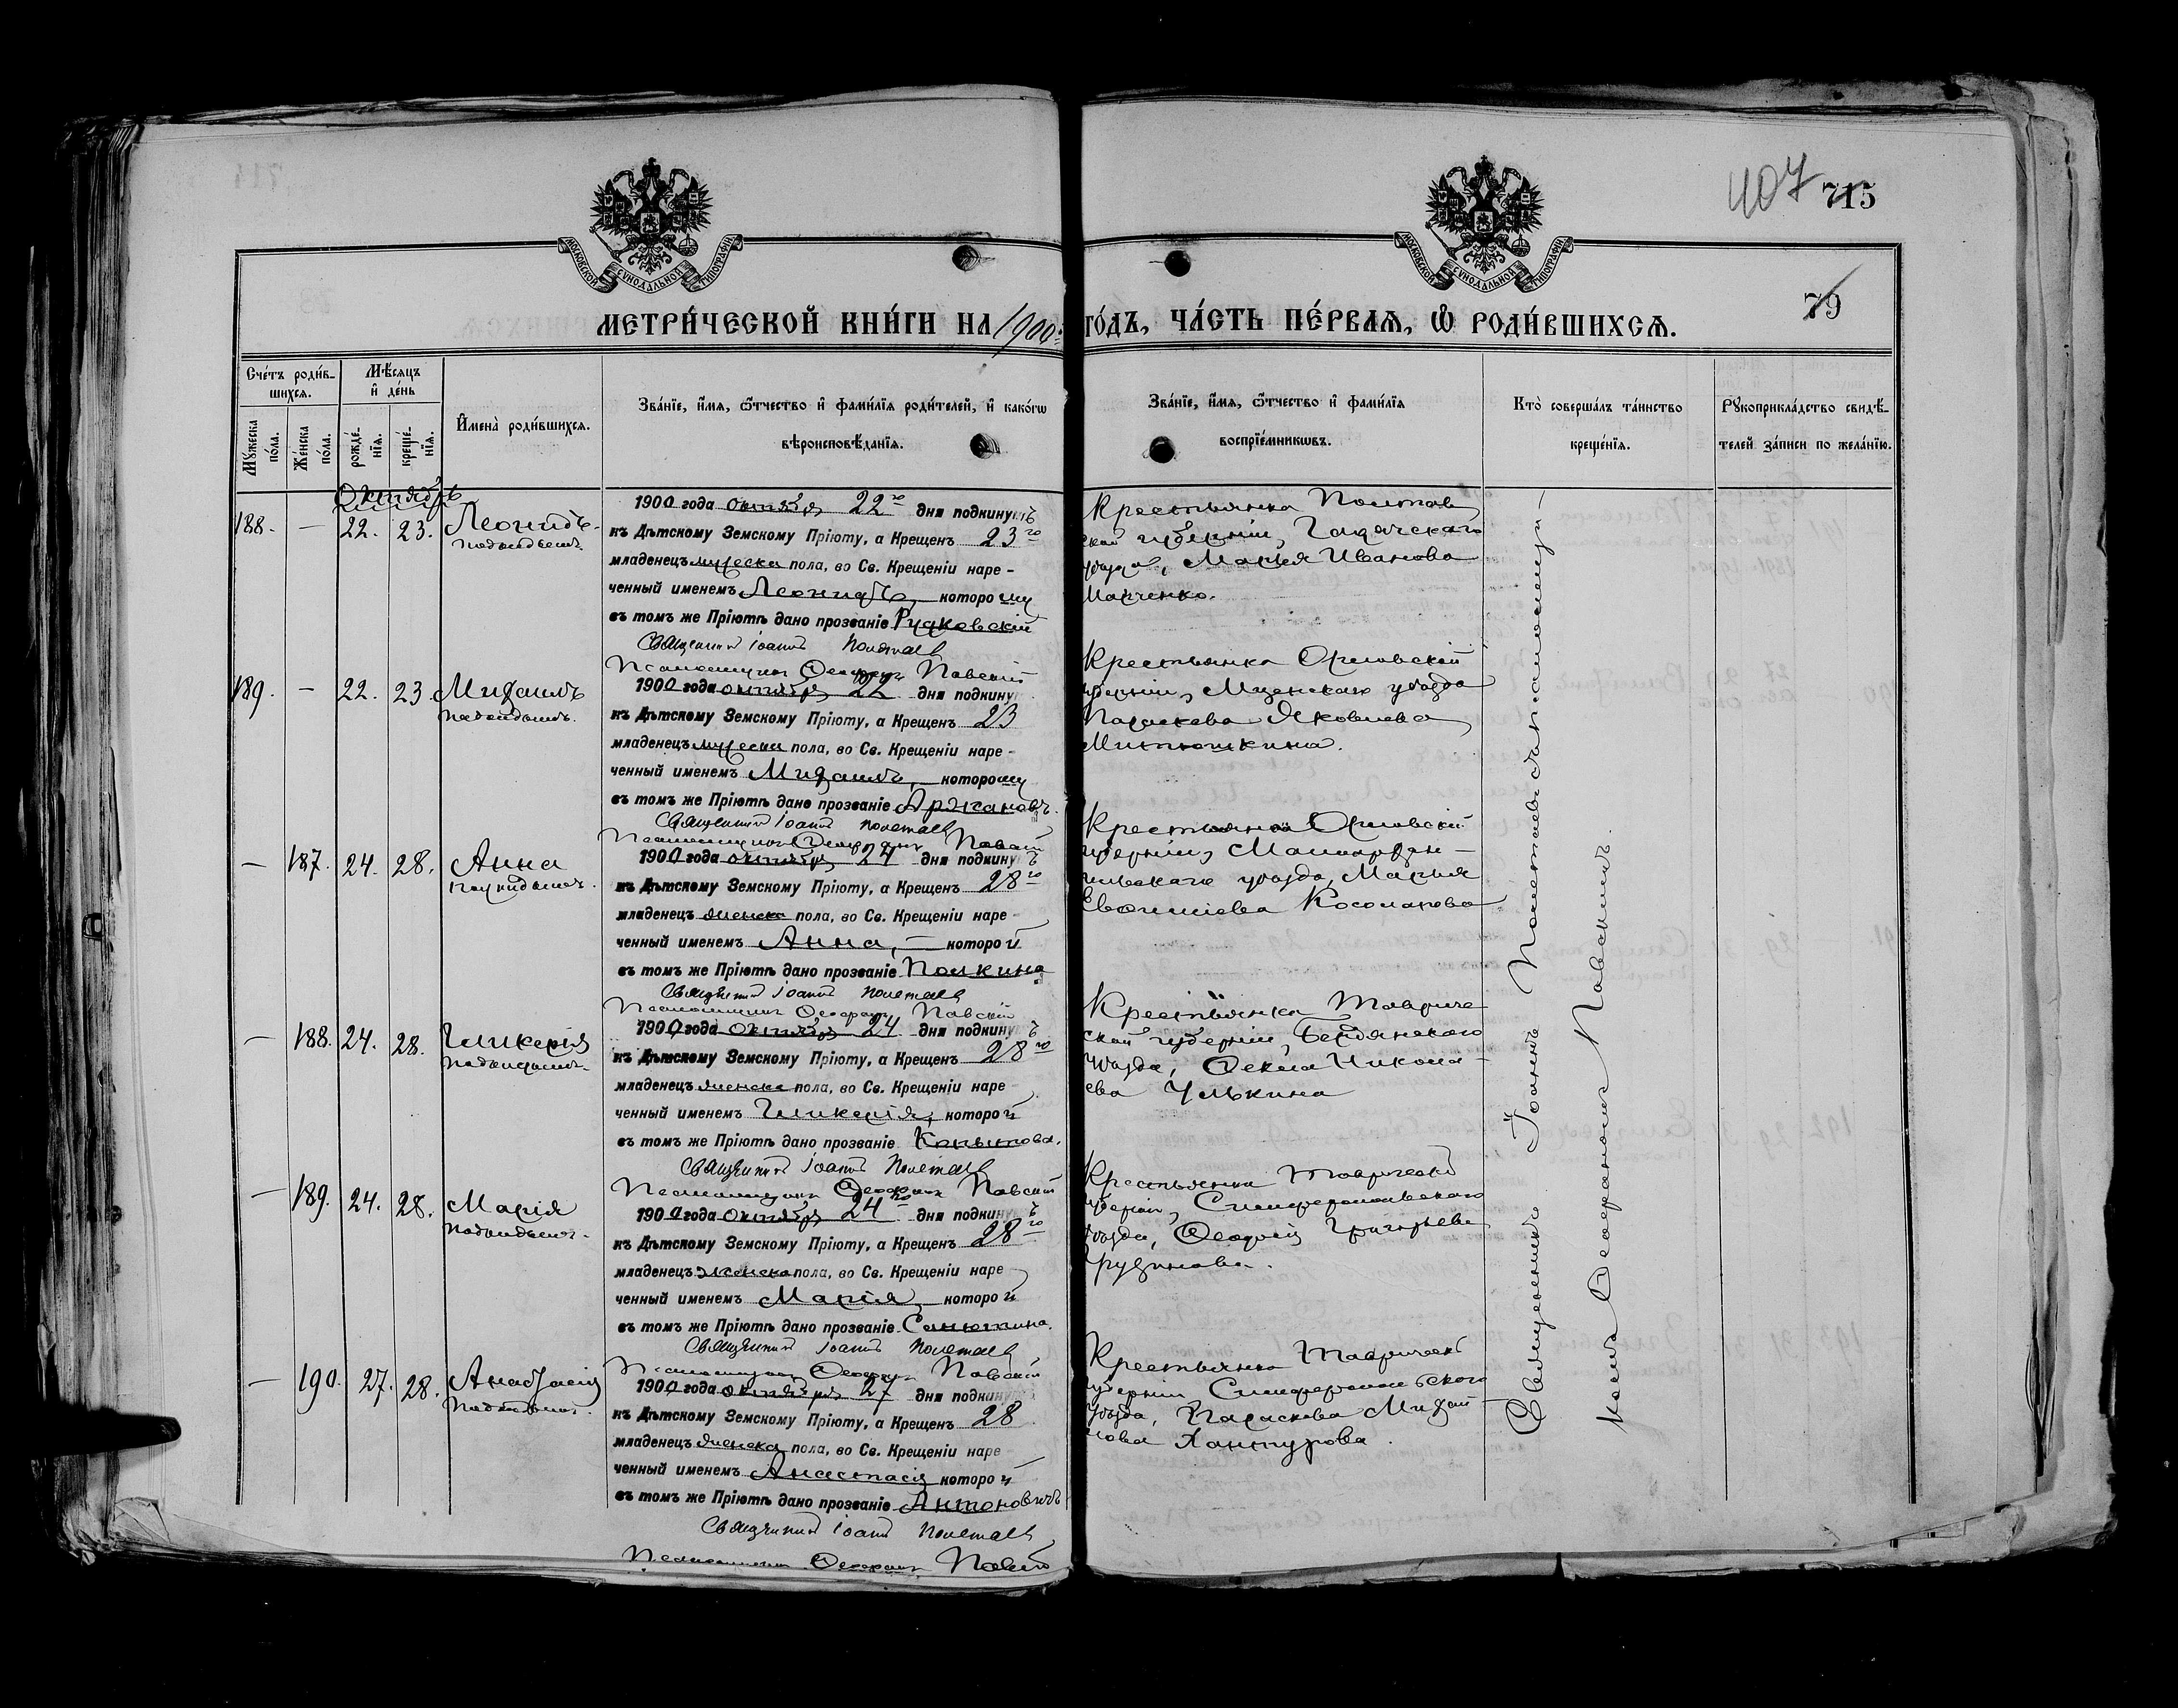 407 715
79
МОСКОВСКОЙ СУНОДАЛЬНОЙ ТИПОГРАФІИ
МОСКОВСКОЙ СУНОДАЛЬНОЙ ТИПОГРАФІИ
МЕТРИ́ЧЕСКОЙ КНИ́ГИ НА 1900 ГО́ДЪ, ЧА́СТЬ ПЕ́РВАЯ, Ѽ РОДИ́ВШИХСЯ.
Сче́тъ роди́в-
шихся.
Му́жеска по́ла.
Же́нска по́ла.
Мѣ́сяцъ и҆ де́нь
рожде́-нїя.
креще́-нїя.
И҆мена̀ роди́вшихся.
Зва́нїе, и҆́мя, ѻ҆́тчество и҆ фами́лїя роди́телей, и҆ како́гѡ
вѣроисповѣ́данїя.
Зва́нїе, и҆́мя, ѻ҆́тчество и҆ фами́лїя
воспрїе́мникѡвъ.
Кто̀ соверша́лъ та́инство
креще́нїя.
Рꙋкоприкла́дство свидѣ́-
телей за́писи по жела́нїю.
Октябрь
188. — 22. 23. Леонидъ
подкидышъ.
1900 года октября 22го дня подкинутъ
къ Дѣтскому Земскому Пріюту, а Крещенъ 23го
младенецъ мужеска пола, во Св. Крещеніи наре-
ченный именемъ Леонидъ, которому
въ томъ же Пріютѣ дано прозваніе Рудковскій
Священникъ Іоаннъ Полетаевъ
Псаломщикъ Ѳеофанъ Павскій
Крестьянка Полтав
ской губерніи, Гадячскаго
уѣзда, Марія Иванова
Марченко.
189. — 22. 23. Михаилъ
подкидышъ.
1900 года октября 22 дня подкину
къ Дѣтскому Земскому Пріюту, а Крещенъ 23
младенецъ мужеска пола, во Св. Крещеніи наре-
ченный именемъ Михаилъ, которому
въ томъ же Пріютѣ дано прозваніе Аржановъ.
Священникъ Іоаннъ Полетаевъ
Псаломщикъ Ѳеофанъ Павскій
Крестьянка Орловской
губерніи, Мценскаго уѣзда
Параскева Яковлева
Митюшкина.
— 187. 24. 28. Анна
подкидышъ.
1900 года октября 24 дня подкинутъ
къ Дѣтскому Земскому Пріюту, а Крещенъ 28го
младенецъ женска пола, во Св. Крещеніи наре-
ченный именемъ Анна, — которой
въ томъ же Пріютѣ дано прозваніе Полкина
Священникъ Іоаннъ Полетаевъ
Псаломщикъ Ѳеофанъ Павскій
Крестьянка Орловской
губерніи, Малоархан-
гельскаго уѣзда, Марія
Косолапова
— 188. 24. 28. Гликерія
подкидышъ.
1900 года октября 24 дня подкинутъ
къ Дѣтскому Земскому Пріюту, а Крещенъ 28го
младенецъ женска пола, во Св. Крещеніи наре
ченный именемъ Гликерія, которой
въ томъ же Пріютѣ дано прозваніе Копылова.
Священникъ Іоаннъ Полетаевъ
Псаломщикъ Ѳеофанъ Павскій
Крестьянка Тавриче
ской губерніи, Бердянскаго
уѣзда, Ѳекла Никола-
ева Улькина
— 189. 24. 28. Марія
подкидышъ.
1900 года октября 24го дня подкинутъ
къ Дѣтскому Земскому Пріюту, а Крещенъ 28го
младенецъ женска пола, во Св. Крещеніи наре
ченный именемъ Марія, которой
въ томъ же Пріютѣ дано прозваніе Санюткина.
Священникъ Іоаннъ Полетаевъ
Псаломщикъ Ѳеофанъ Павскій
Крестьянка Таврической
губерніи, Симферопольскаго
уѣзда, Григорьева
— 190. 27. 28. Анастасія
подкидышъ.
1900 года октября 27 дня подкинутъ
къ Дѣтскому Земскому Пріюту, а Крещенъ 28
младенецъ женска пола, во Св. Крещеніи наре
ченный именемъ Анастасія которой
въ томъ же Пріютѣ дано прозваніе Антоновичъ
Священникъ Іоаннъ Полетаевъ
Псаломщикъ Ѳеофанъ Павскій
Крестьянка Таврической
губерніи Симферопольскаго
уѣзда, Параскева Михай
лова Хантурова.
Священникъ Іоаннъ Полетаевъ съ псаломщи-
комъ Ѳеофаномъ Павскимъ.